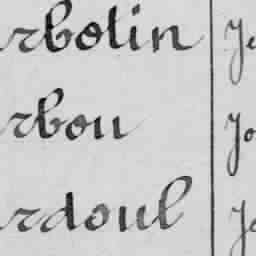 rbotin Je
rbou Jo
rdoul Je